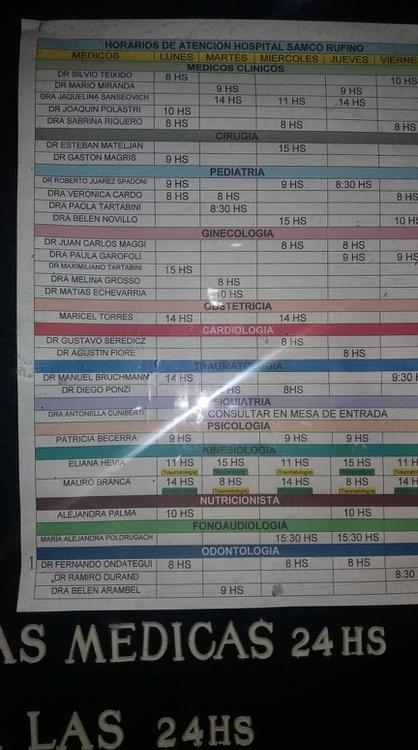 HORARIOS DE ATENCION HOSPITAL SAMCO RUFINO
MEDICOS LUNES MARTES MIERCOLES JUEVES VIERNE
MEDICOS CLINICOS
DR SILVIO TEIXIDO 8 HS 10 HS
DR MARIO MIRANDA 9 HS 9 HS
DRA JAQUELINA SANSEOVICH 14 HS 11 HS 14 HS
DR JOAQUIN POLASTRI 10 HS
DRA SABRINA RIQUERO 8 HS 8 HS 8 HS
CIRUGIA
DR ESTEBAN MATELJAN 15 HS
DR GASTON MAGRIS 9 HS
PEDIATRIA
DR ROBERTO JUAREZ SPADONI 9 HS 9 HS 8:30 HS
DRA VERONICA CARDO 8 HS 8 HS 8 HS
DRA PAOLA TARTABINI 8:30 HS
DRA BELEN NOVILLO 15 HS 10 HS
GINECOLOGIA
DR JUAN CARLOS MAGGI 8 HS 8 HS
DRA PAULA GAROFOLI 9 HS 9 HS
DR MAXIMILIANO TARTABINI 15 HS
DRA MELINA GROSSO 8 HS
DR MATIAS ECHEVARRIA 10 HS
OBSTETRICIA
MARICEL TORRES 14 HS 14 HS
CARDIOLOGIA
DR GUSTAVO SEREDICZ 8 HS
DR AGUSTIN FIORE 8 HS
TRAUMATOLOGIA
DR MANUEL BRUCHMANN 14 HS 9:30 H
DR DIEGO PONZI HS 8HS
PSIQUIATRIA
DRA ANTONELLA CUNIBERTI CONSULTAR EN MESA DE ENTRADA
PSICOLOGIA
PATRICIA BECERRA 9 HS 9 HS 9 HS
KINESIOLOGIA
ELIANA HEVIA 11 HS 15 HS 11 HS 15 HS 11 H
(Traumatología) (Traumatología)
MAURO BRANCA 14 HS 8 HS 14 HS 8 HS 14 H
(Traumatología) (Traumatología)
NUTRICIONISTA
ALEJANDRA PALMA 10 HS 10 HS
FONOAUDIOLOGIA
MARÍA ALEJANDRA POLDRUGACH 15:30 HS 15:30 HS
ODONTOLOGIA
DR FERNANDO ONDATEGUI 8 HS 8 HS 8 HS
DR RAMIRO DURAND 8:30
DRA BELEN ARAMBEL 9 HS
AS MEDICAS 24 HS
LAS 24HS